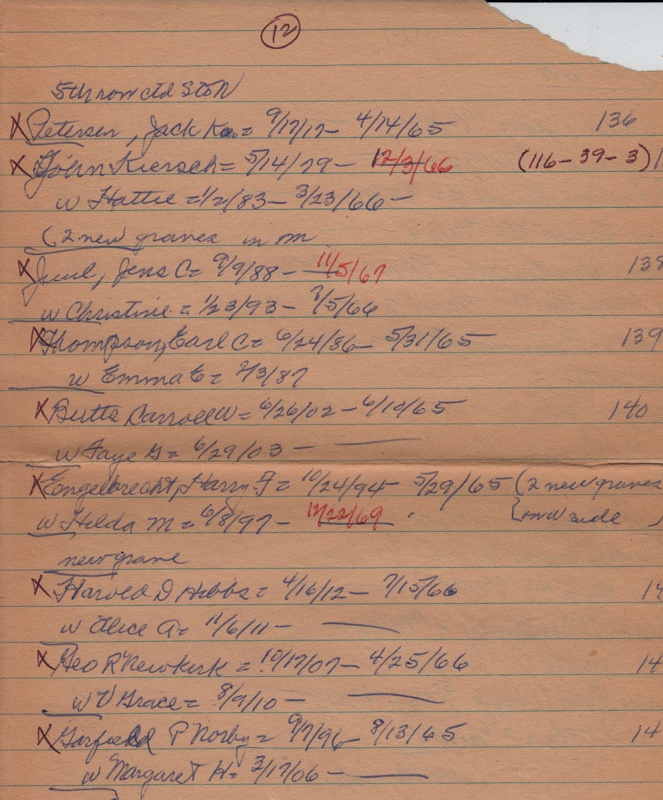 12
5th row ctd S to N
X Petersen, Jack K. = 9/17/17 – 4/14/65 136
X John Kiersch = 5/14/79 – 12/3/66 (116-39-3)
w Hattie = 1/2/83 – 3/23/66 –
(2 new graves in m
X Juul, Jens C = 9/9/88 – 11/5/67 138
w Christine = 1/23/93 – 7/5/66
X Thompson, Earl C = 6/24/86 – 5/31/65 139
w Emma E = 2/3/87
X Butts Carroll W = 6/26/02 – 6/10/65 140
w Faye G = 6/29/03 – ——
X Engelbrecht, Harry F = 10/24/94 – 5/29/65 (2 new graves
w Hilda M = 6/8/97 – 11/22/69 on W side )
new grave
X Harold D Hibbs = 4/16/12 – 7/15/66 14
w Alice A = 11/6/11 – ——
X Geo R Newkirk = 10/17/07 – 4/25/66 14
w V Grace = 8/9/10 – ——
X Garfield P Norby = 9/7/96 – 8/13/65 14
w Margaret H = 3/17/06 – ——